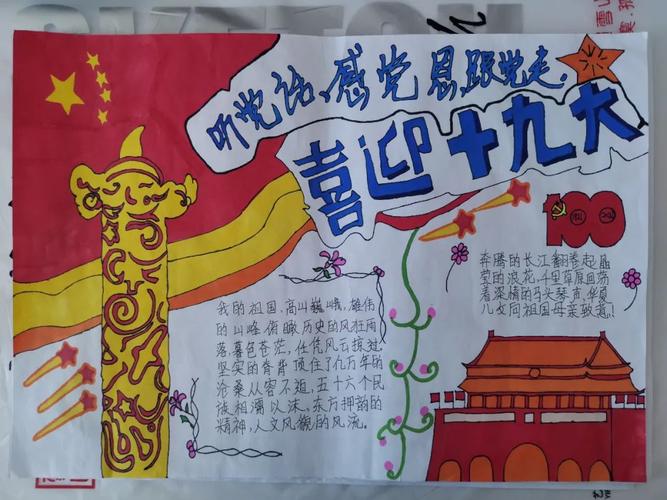 听党话、感党恩跟党走,
喜迎十九大
100
奔腾的长江翻卷起晶
莹的浪花,千里草原回荡
着深情的马头琴声,华夏
儿女向祖国母亲致意!
我的祖国,高山巍峨,雄伟
的山峰俯瞰历史的风狂雨
落暮色苍茫,任凭风云掠过
坚实的脊背顶住了亿万年的
沧桑从容不迫,五十六个民
族相濡以沫,东方押韵的
精神,人文风貌的风流。